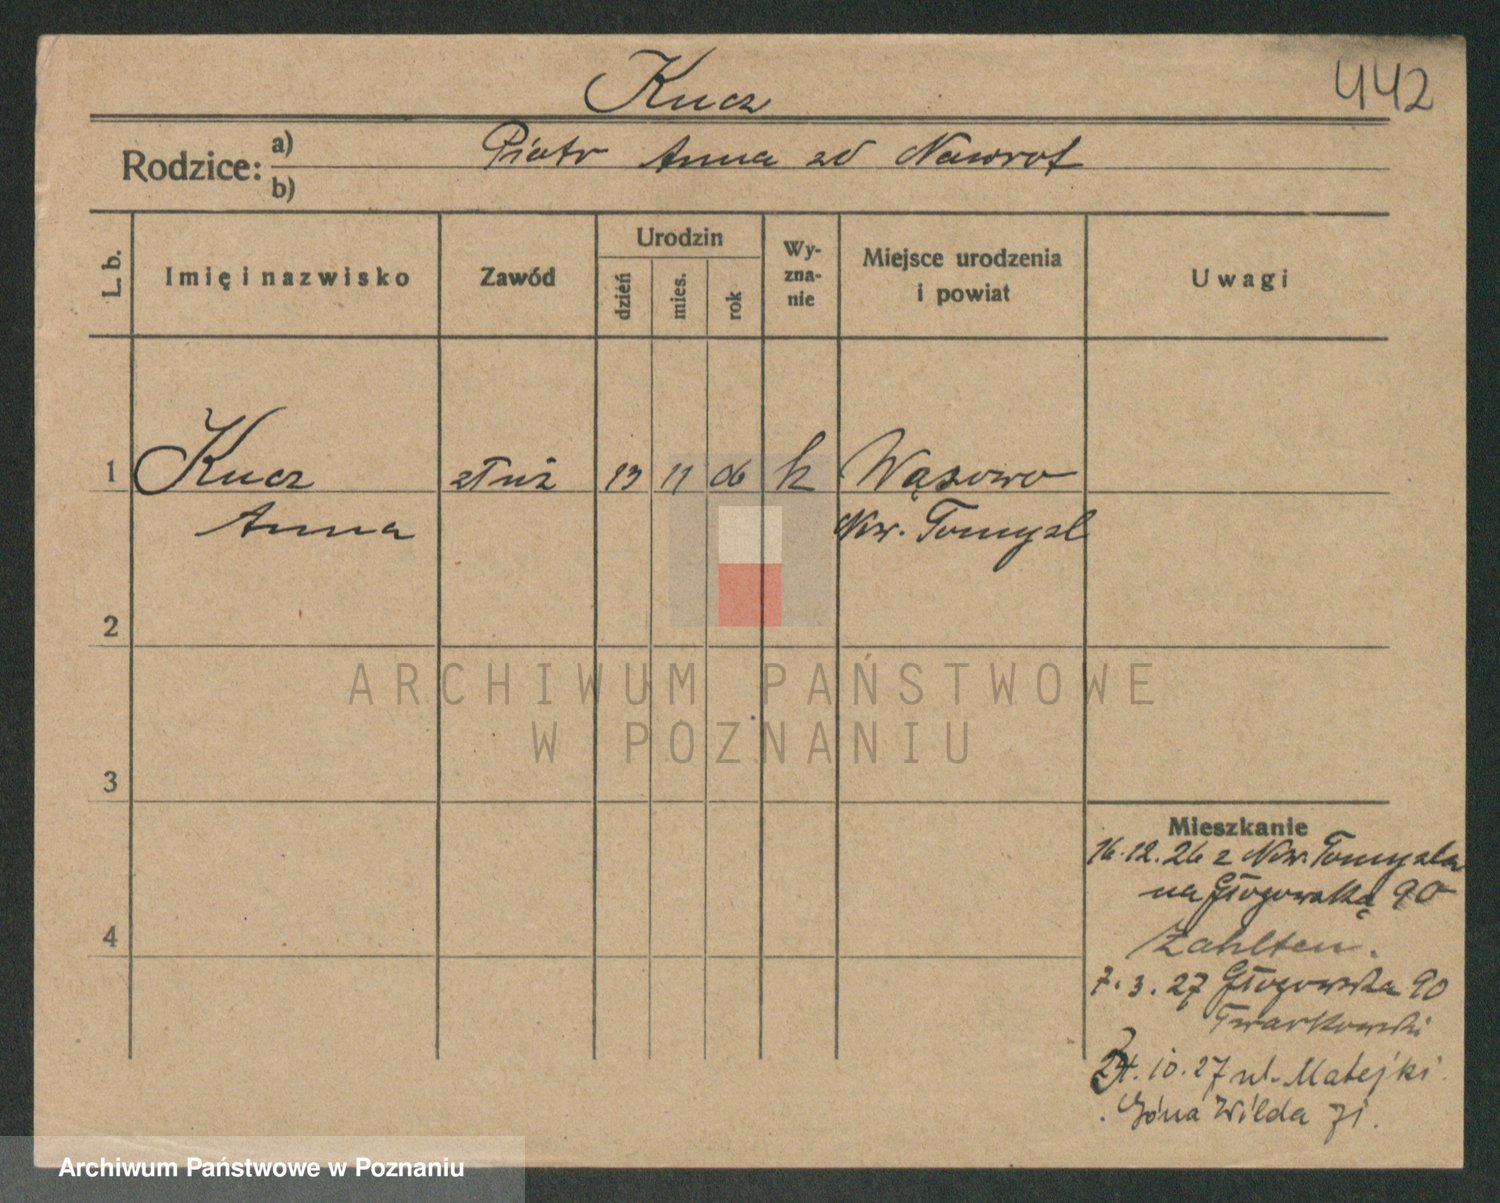 Kucz
442
Rodzice: a) Piotr Anna zd Nawrot
b)
L. b. Imię i nazwisko Zawód Urodzin dzień mies. rok Wy-zna-nie Miejsce urodzenia i powiat Uwagi
1 Kucz służ 13 11 06 k Wąsowo
Anna Nw. Tomysl
2
3
4
ARCHIWUM PAŃSTWOWE
W POZNANIU
Mieszkanie
16.12.26 z Nw. Tomysla
na Głogowską 90
Zahlten.
7.3.27 Głogowska 90
Twarkowski
10.27 ul. Matejki
Góna Wilda 71.
Archiwum Państwowe w Poznaniu